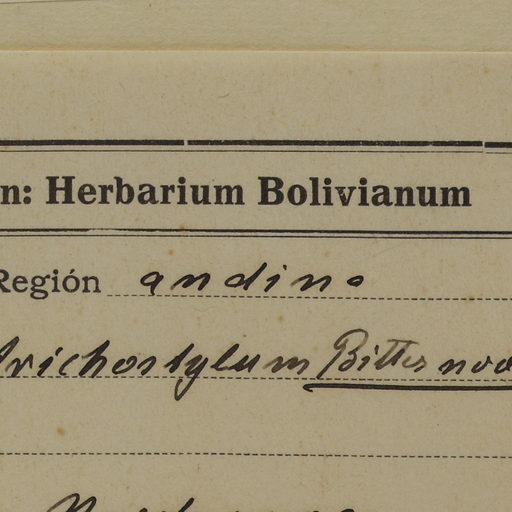 n: Herbarium Bolivianum
Región andina
trichostylum Bitter nov